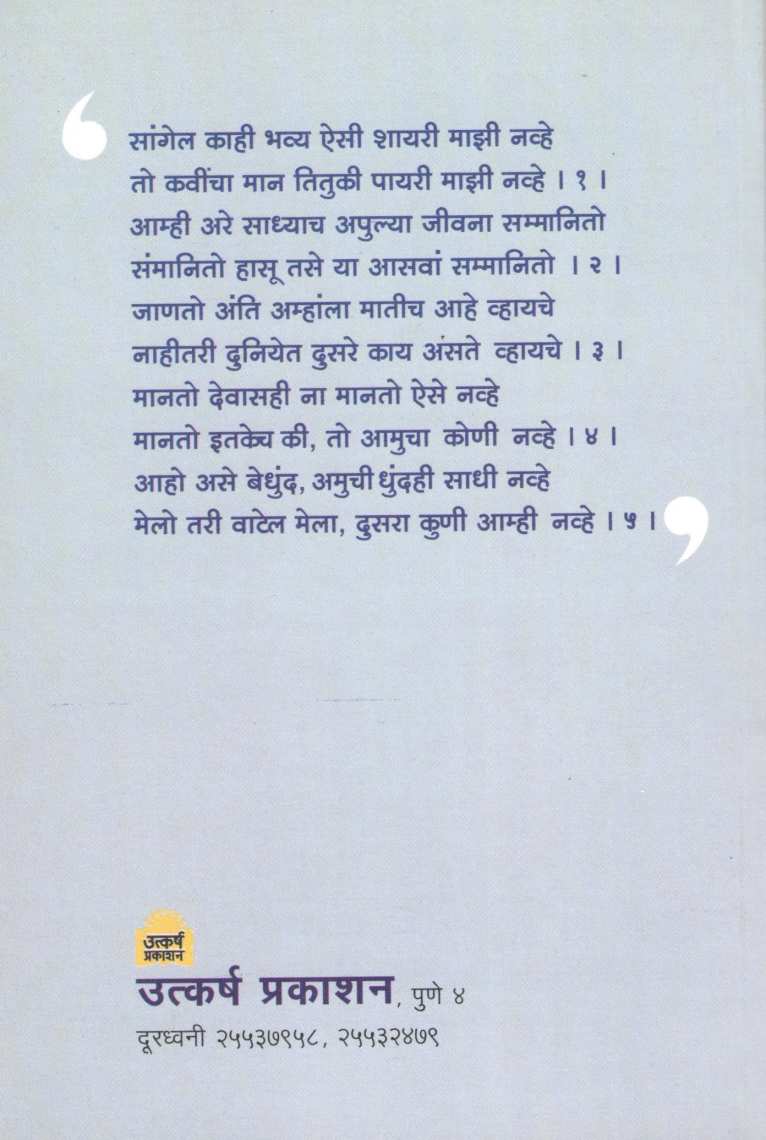 सांगेल काही भव्य ऐसी शायरी माझी नव्हे
तो कवींचा मान तितुकी पायरी माझी नव्हे । १ ।
आम्ही अरे साध्याच अपुल्या जीवना सम्मानितो
संमानितो हासू तसे या आसवां सम्मानितो । २ ।
जाणतो अंति अम्हांला मातीच आहे व्हायचे
नाहीतरी दुनियेत दुसरे काय अंसते व्हायचे । ३ ।
मानतो देवासही ना मानतो ऐसे नव्हे
मानतो इतकेच की, तो आमुचा कोणी नव्हे । ४ ।
आहो असे बेधुंद, अमुची धुंदही साधी नव्हे
मेलो तरी वाटेल मेला, दुसरा कुणी आम्ही नव्हे । ५ ।
उत्कर्ष
प्रकाशन
उत्कर्ष प्रकाशन, पुणे ४
दूरध्वनी २५५३७९५८, २५५३२४७९